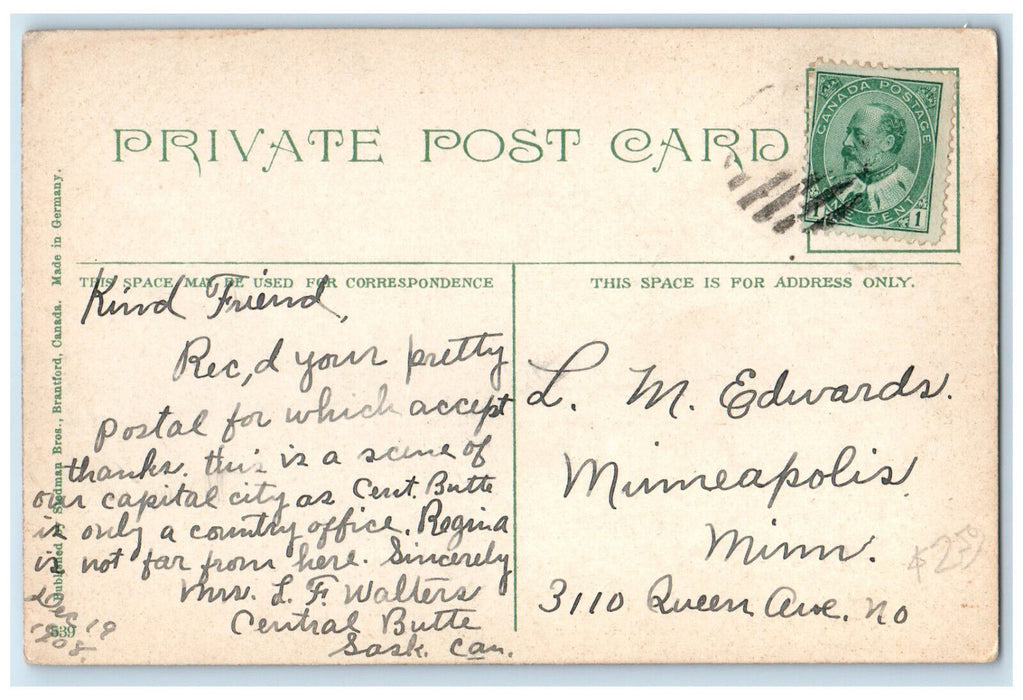 PRIVATE POST CARD
CANADA POSTAGE
ONE CENT
1 1
THIS SPACE MAY BE USED FOR CORRESPONDENCE
THIS SPACE IS FOR ADDRESS ONLY.
Published by Stedman Bros., Brantford, Canada. Made in Germany.
Kind Friend,
Rec,d your pretty
postal for which accept
thanks. this is a scene of
our capital city as Cent. Butte
is only a country office. Regina
is not far from here. Sincerely
Mrs. L. F. Walters
Central Butte
Sask. Can.
Dec
539
L. M. Edwards.
Minneapolis
Minn.
3110 Queen Ave. No